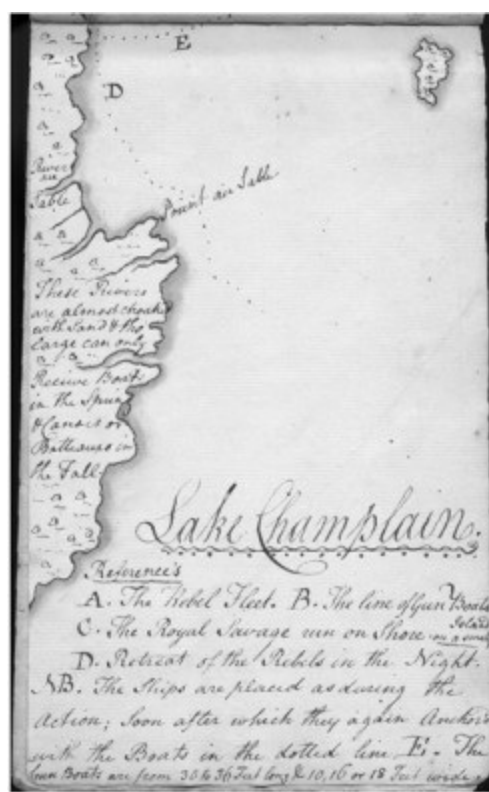 E
D
River
au
Sable
Point au Sable
These Rivers
are almost choaked
with Sand & tho
large can only
Receive Boats
in the Spring
& Canoes or
Batteaux in
the Fall
Lake Champlain.
Reference's
A. The Rebel Fleet. B. The line of Gun Boats
C. The Royal Savage run on Shore on a small Island
D. Retreat of the Rebels in the Night.
NB. The Ships are placed as during the
Action; Soon after which they again Anchor'd
with the Boats in the dotted line E. The
Gun Boats are from 30 to 36 Feet long & 10, 16 or 18 Feet wide.